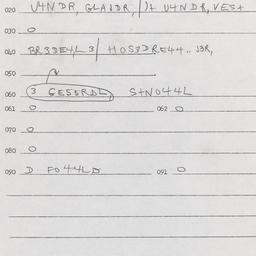 020 U4NDR, GLA1DR / )+ U4NDR, VES+
030 0
040 BR3DE4L3 / HOS3DRE44.. 13R,
050
060 (3 GE5ERDL) S+NO44L
061 0 062 0
070 0
080 0
090 D FO44LD 091 0